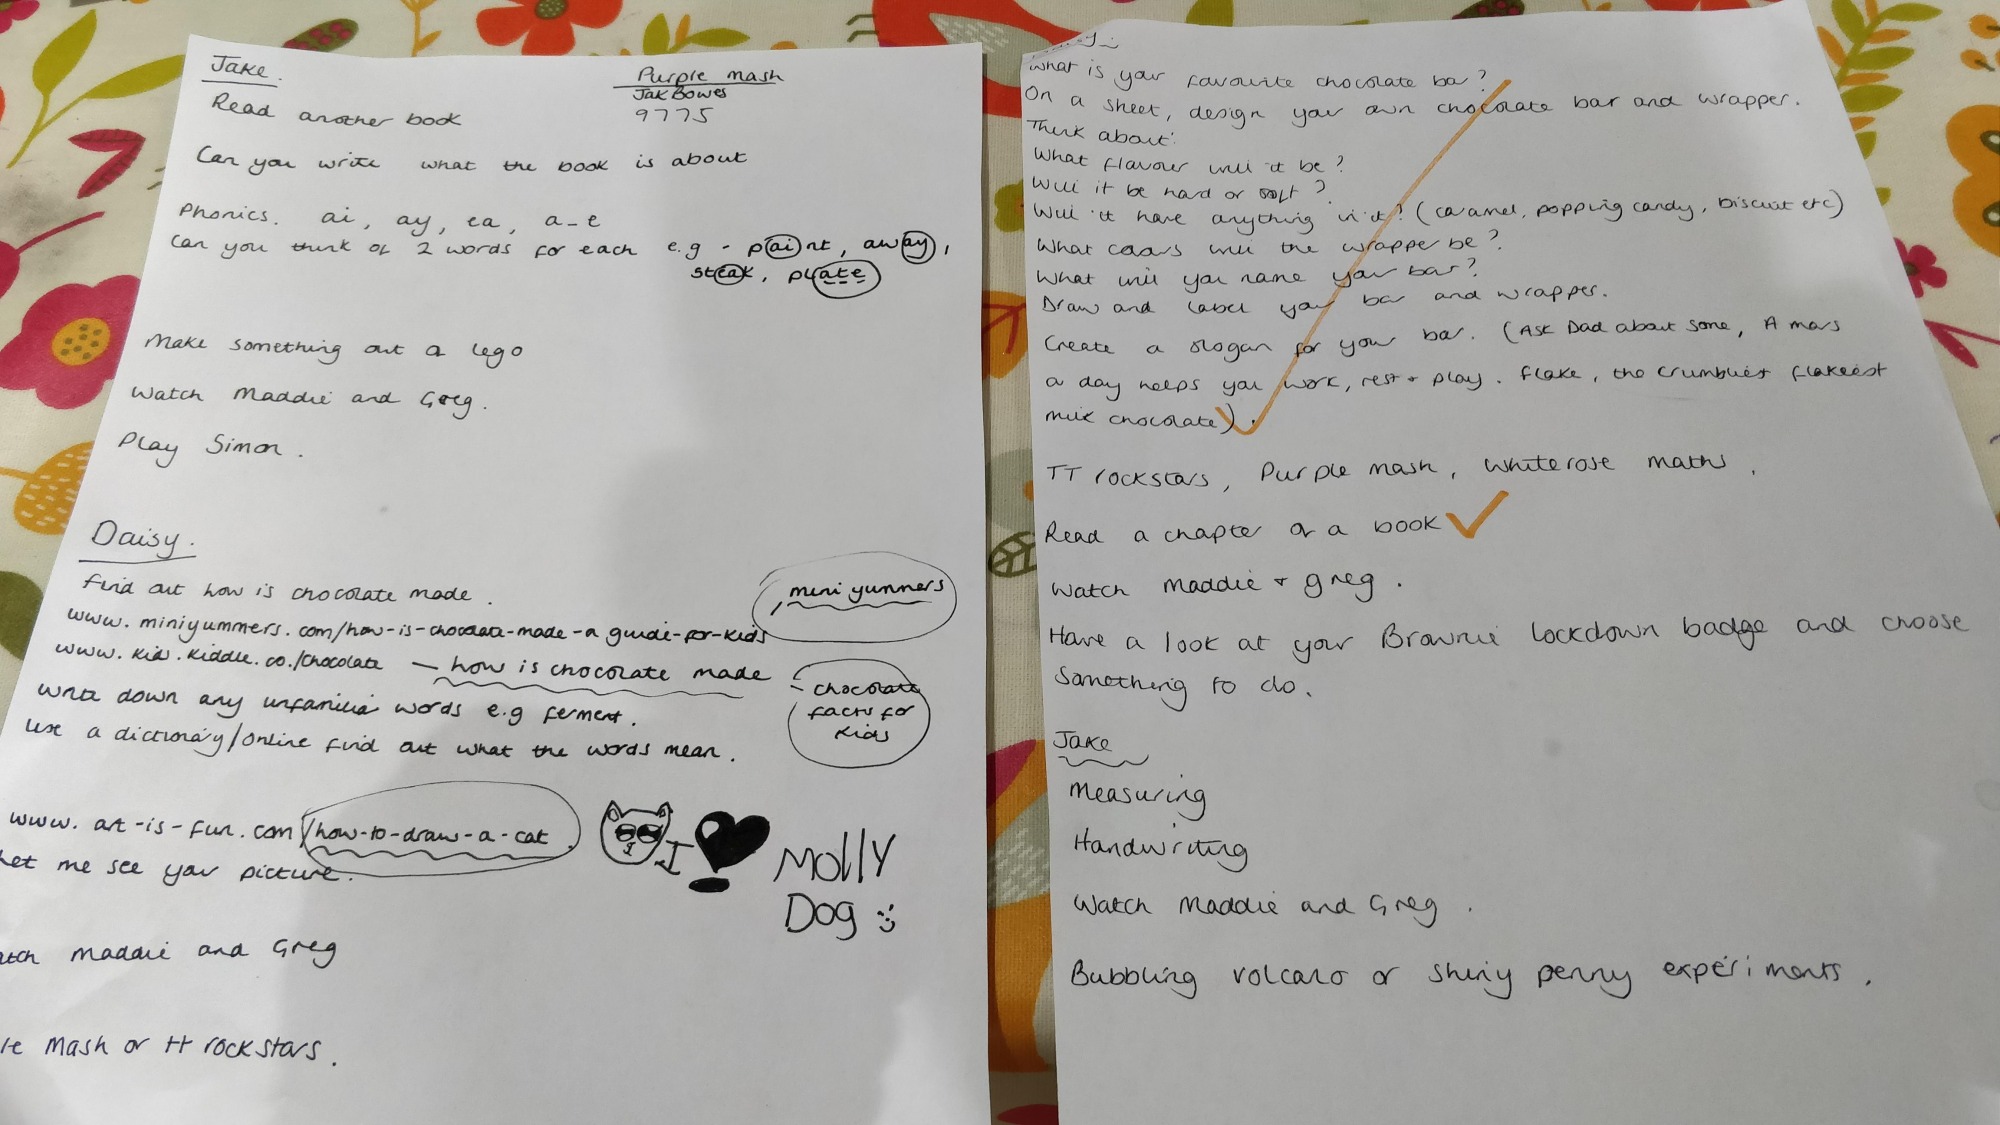 Jake.
Purple mash
JakBowes
9775
Read another book
Can you write what the book is about
Phonics. ai, ay, ea, a-e
Can you think of 2 words for each e.g - paint, away,
steak, plate
Make something out a lego
Watch Maddie and Greg.
Play Simon.
Daisy.
Find out how is chocolate made.
mini yummers
www.miniyummers.com/how-is-chocolate-made-a guide-for-kids
www.kids.kiddle.co./chocolate – how is chocolate made
– chocolate
facts for
kids
Write down any unfamiliar words e.g ferment.
Use a dictionary/online find out what the words mean.
www.art-is-fun.com/how-to-draw-a-cat
Let me see your picture.
I
Molly
Dog
atch Maddie and Greg
le Mash or tt rockstars.
What is your favourite chocolate bar?
On a sheet, design your own chocolate bar and wrapper.
Think about:
What flavour will it be?
Will it be hard or soft?
Will it have anything in it? (caramel, popping candy, biscuit etc)
What colours will the wrapper be?
What will you name your bar?
Draw and label your bar and wrapper.
Create a slogan for your bar. (Ask Dad about some, A mars
a day helps you work, rest + play. Flake, the crumbliest flakeist
milk chocolate).
TT rockstars, Purple mash, Whiterose maths.
Read a chapter of a book
Watch maddie + greg.
Have a look at your Brownie lockdown badge and choose
something to do.
Jake
Measuring
Handwriting
Watch Maddie and Greg.
Bubbling volcano or shiny penny experiments.